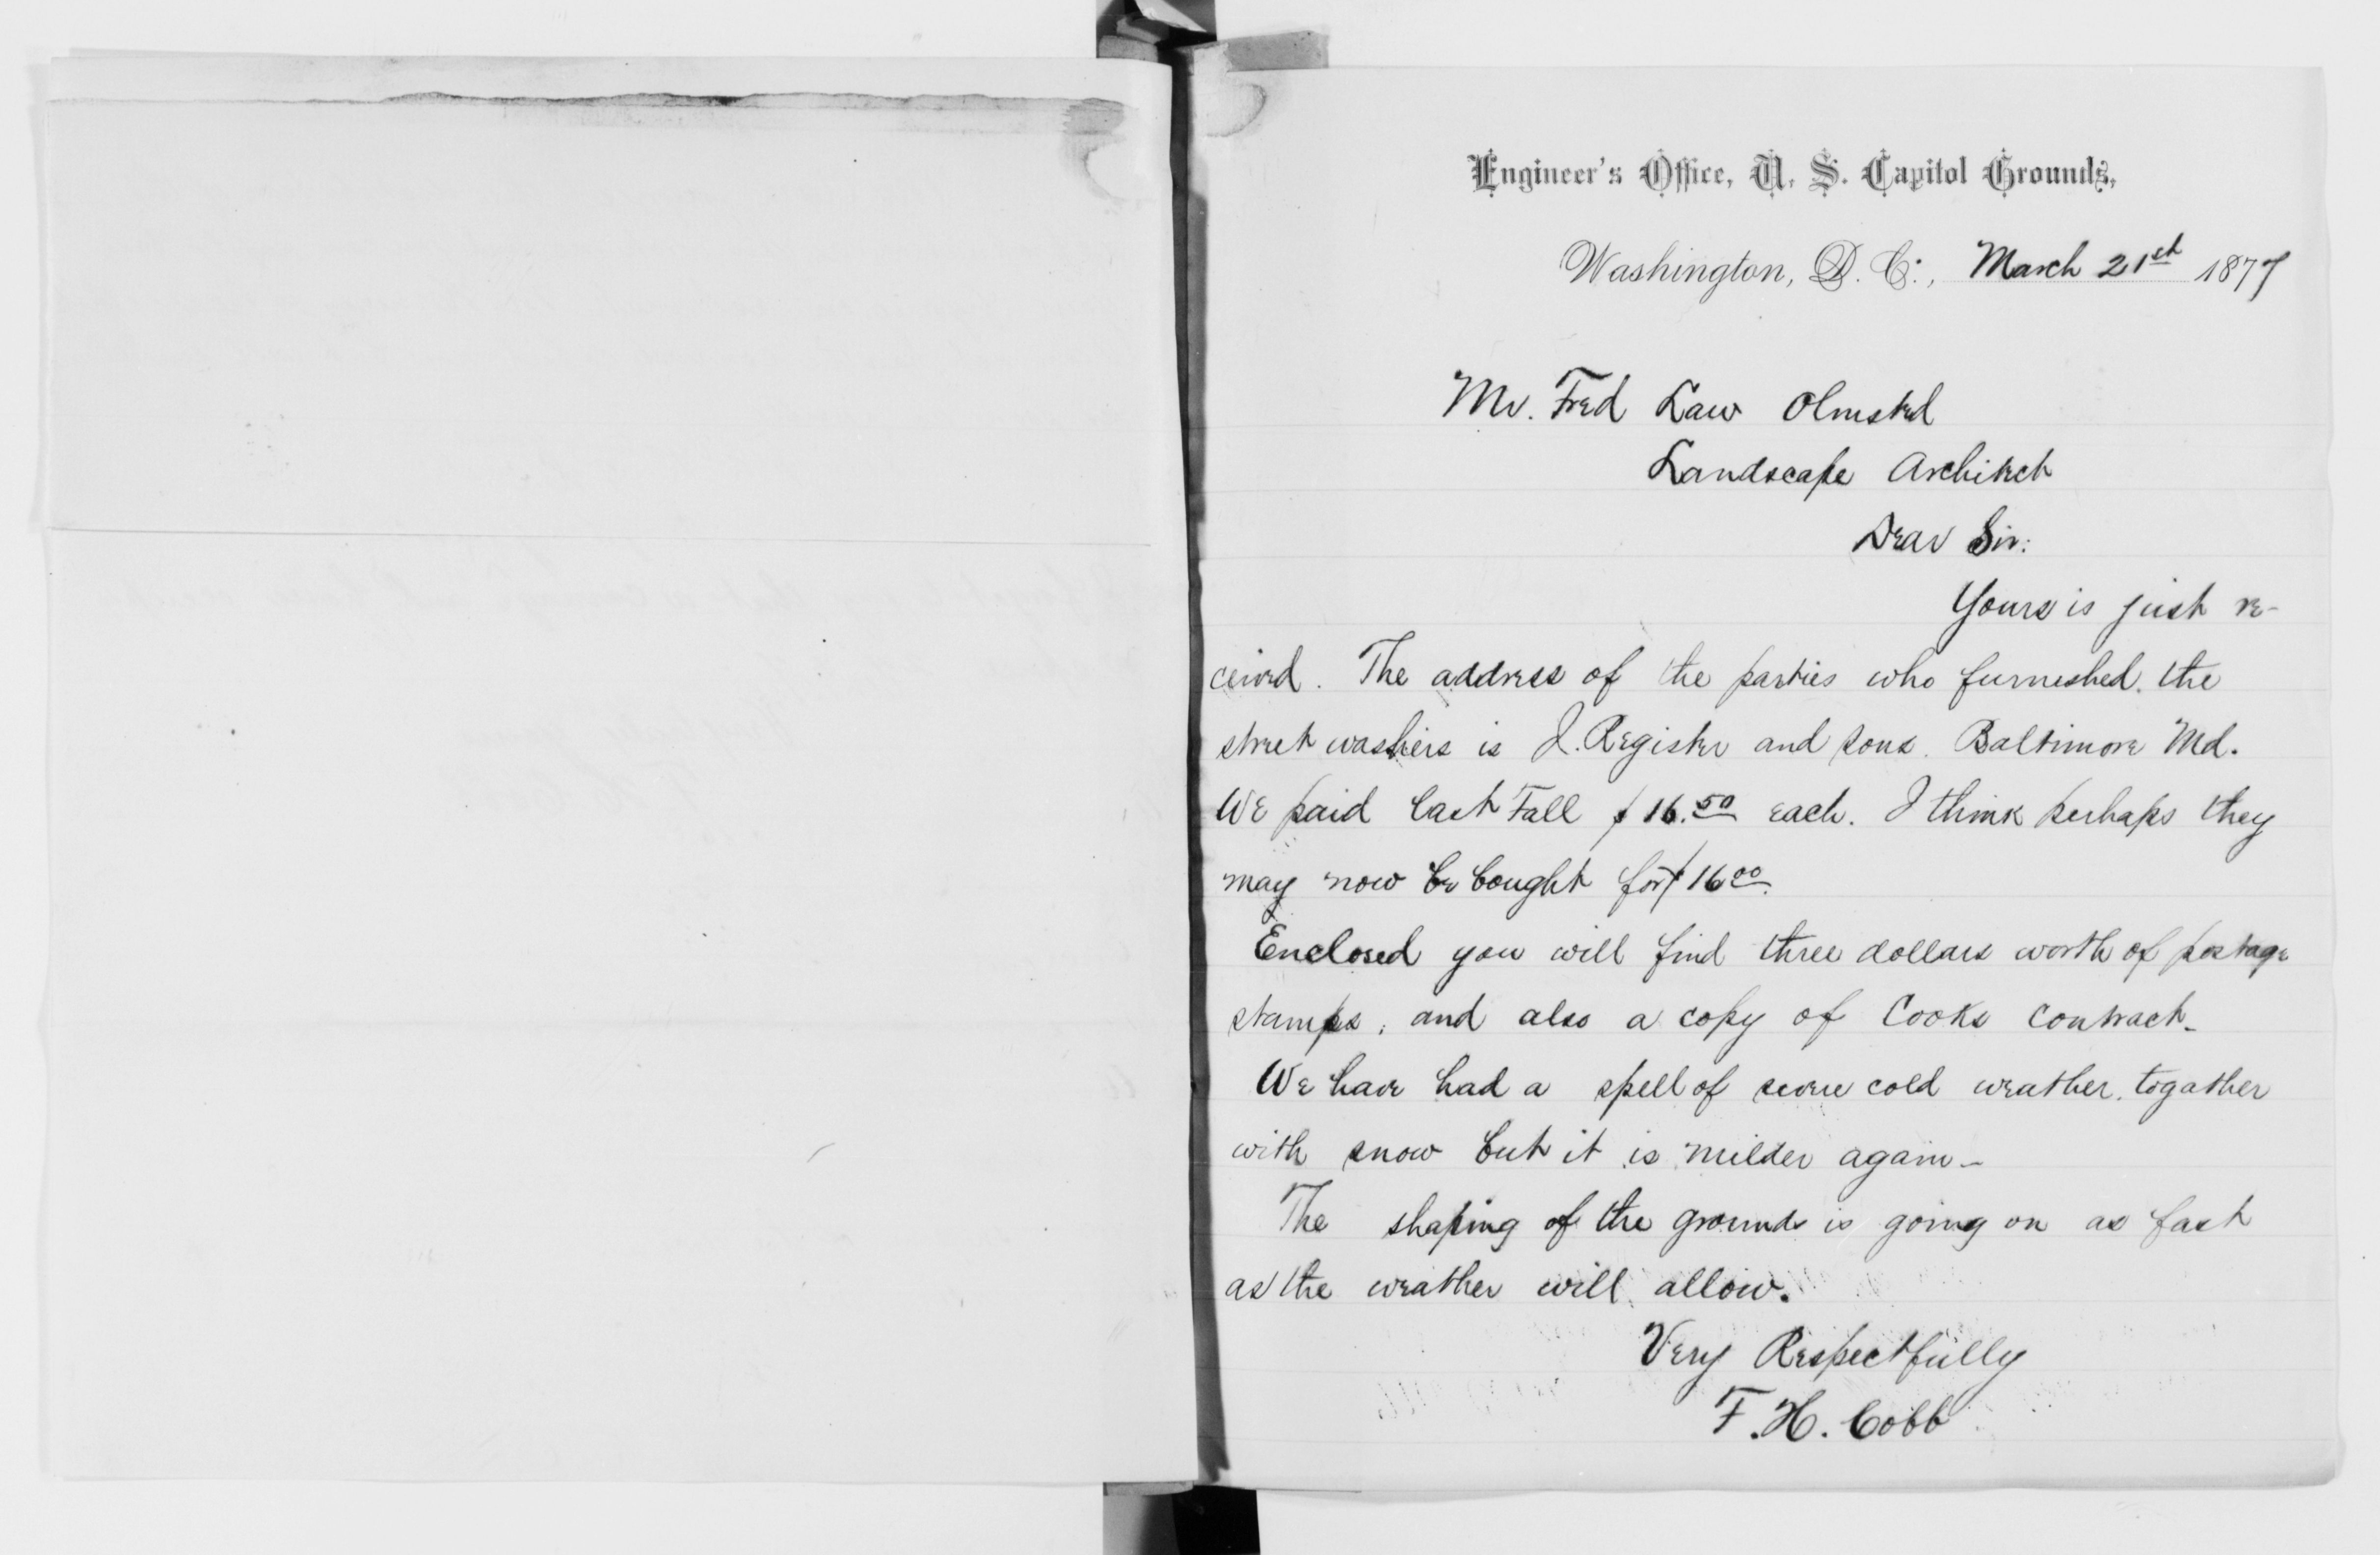 Engineer's Office, U. S. Capitol Grounds,
Washington, D. C., March 21st 1877
Mr. Fred Law Olmsted
Landscape Architect
Dear Sir:
Yours is just re-
ceived. The address of the parties who furneshed the
street washers is J. Register and sons. Baltimore Md.
We paid last Fall $16.50 each. I think perhaps they
may now be bought for $16 00.
Enclosed you will find three dollars worth of postage
stamps, and also a copy of Cooks contract.
We have had a spell of severe cold weather, togather
with snow but it is milder again-
The shaping of the grounds is going on as fast
as the weather will allow.
Very Respectfully
F. H. Cobb